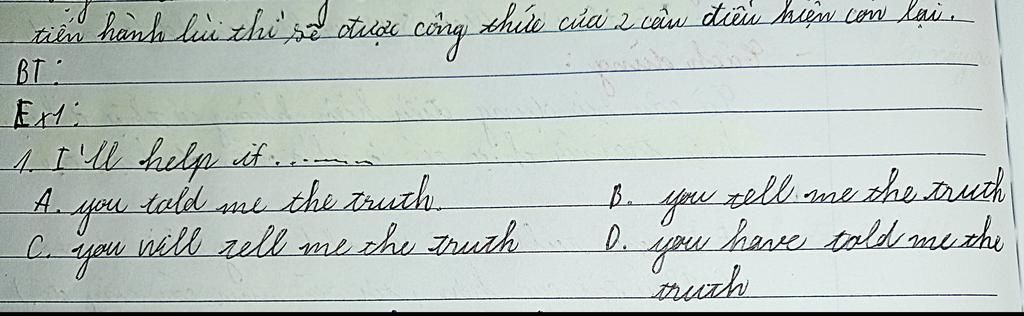 tiến hành lùi thì sẽ được công thức của 2 câu điều kiện còn lại.
BT:
Ex1:
1. I'll help if........
A. you told me the truth. B. you tell me the truth
C. you will tell me the truth D. you have told me the
truth